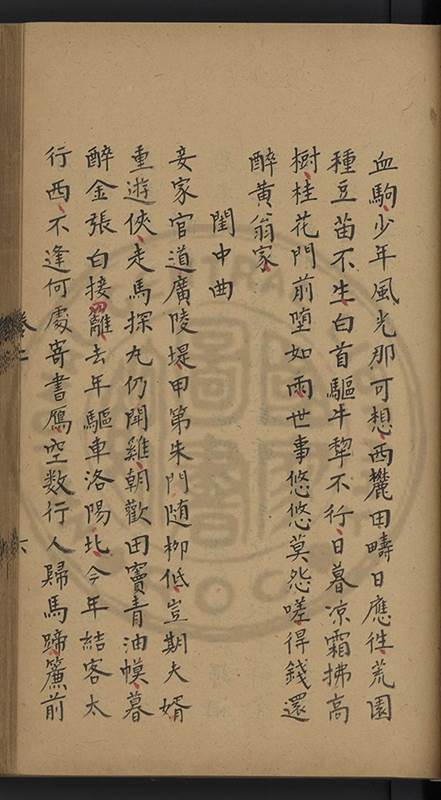 血駒少年風光那可想西麓田疇日應徃荒園
種豆苗不生白首驅牛犂不行日暮凉霜拂高
樹桂花門前墮如雨世事悠悠莫怨嗟得錢還
醉黃翁家
閨中曲
妾家官道廣陵堤甲第朱門随柳低豈期夫婿
重遊俠走馬探丸仍聞雞朝歡田竇青油幙暮
醉金張白接䍦去年驅車洛陽北今年結客太
行西不逢何處寄書鴈空数行人歸馬蹄簾前
卷上
六